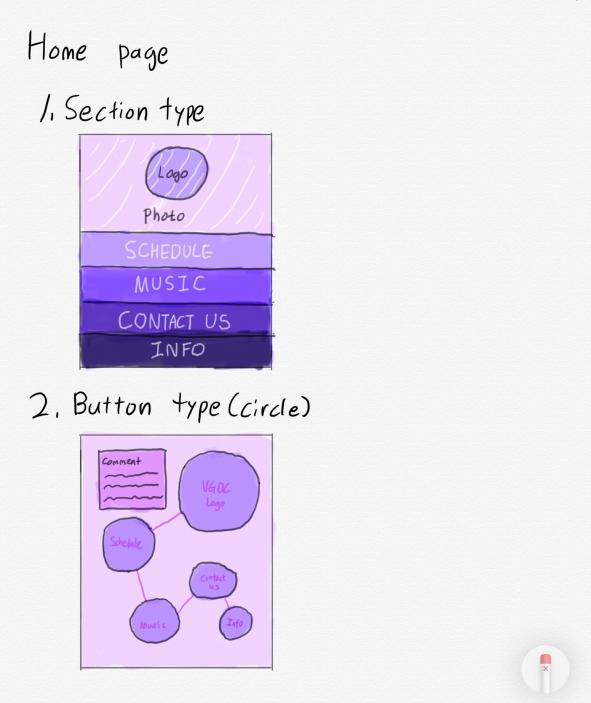 Home page
1. Section type
Logo
Photo
SCHEDULE
MUSIC
CONTACT US
INFO
2. Button type (circle)
Comment
VGDC
Logo
Schedule
Contact
us
Music
Info